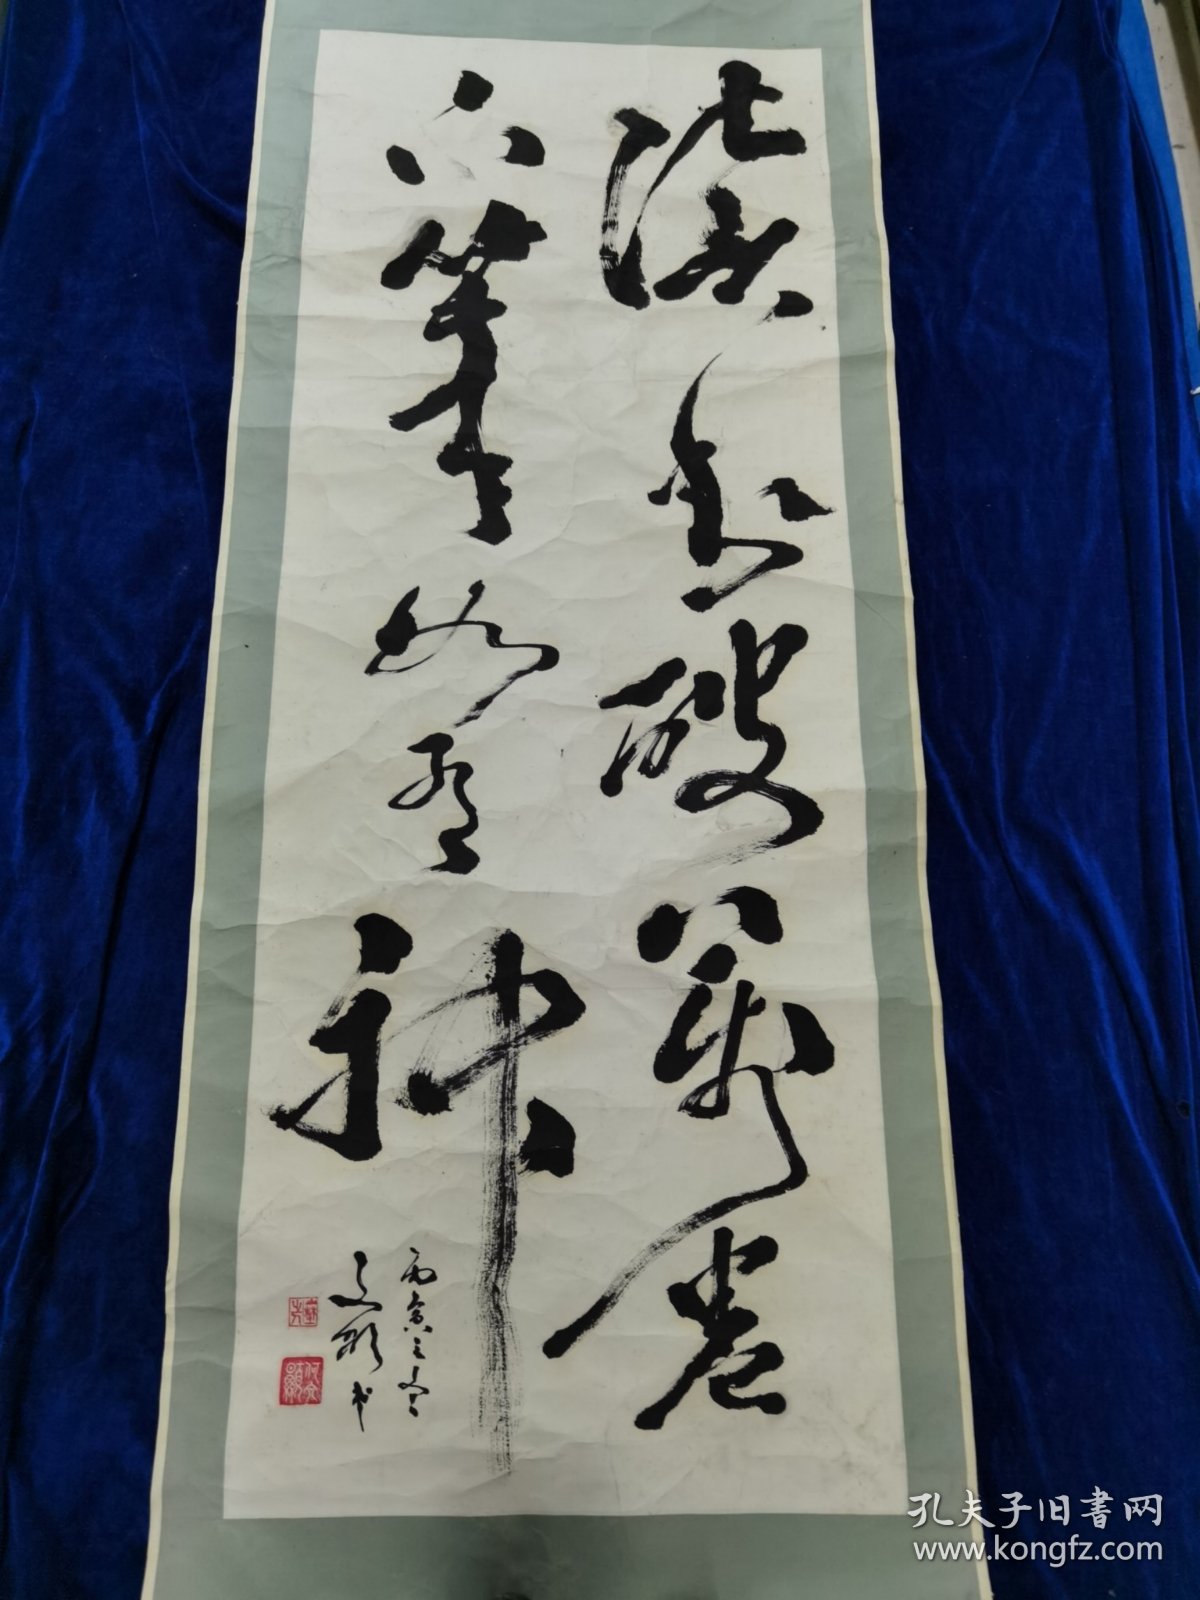 讀書破萬卷
下筆如有神
丙寅之冬
孔夫子旧書网
www.kongfz.com